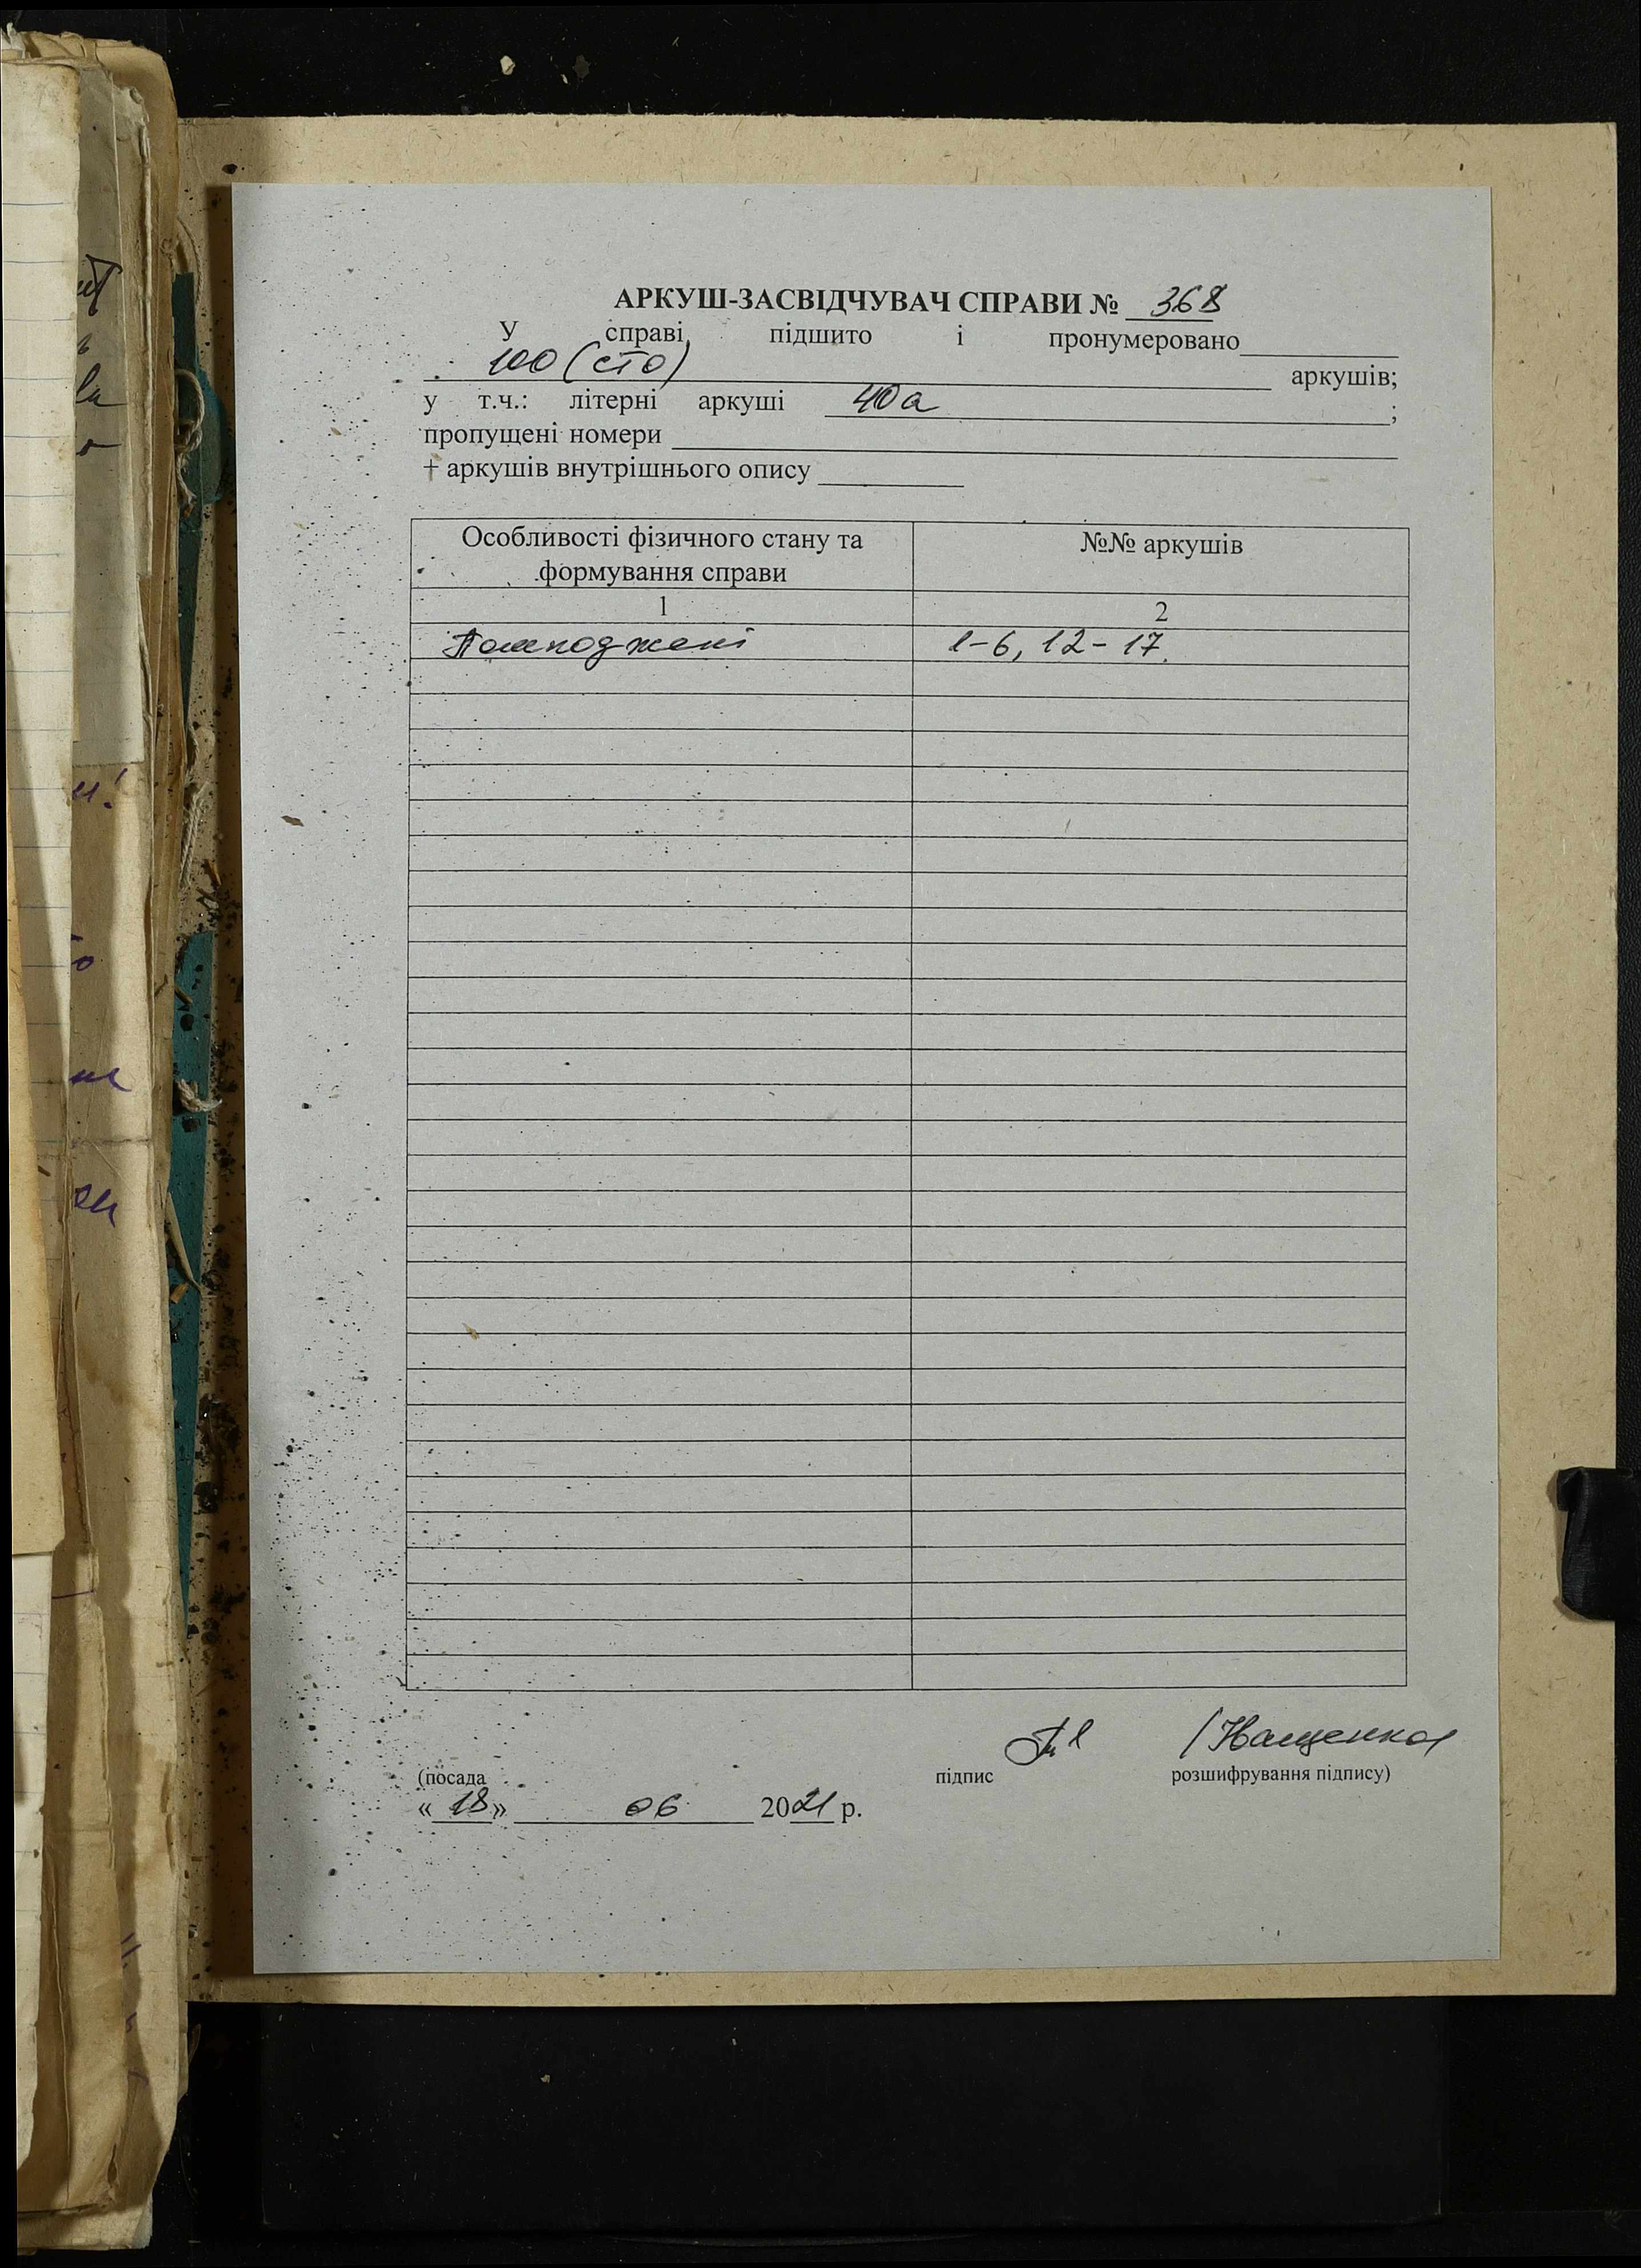 АРКУШ-ЗАСВІДЧУВАЧ СПРАВИ № 368
У справі підшито і пронумеровано
100 (сто) аркушів;
у т.ч.: літерні аркуші 40а ;
пропущені номери
+ аркушів внутрішнього опису
Особливості фізичного стану та формування справи
№№ аркушів
1
2
Пошкоджені
1-6, 12-17.
(посада
підпис
розшифрування підпису)
« 18 » 06 2021 р.